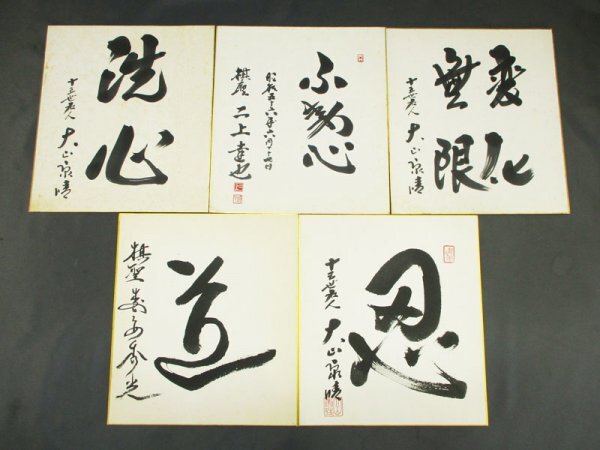 洗心
十五世名人 大山康晴
不動心
昭和五十六年六月十七日
棋聖 二上達也
変化
無限
十五世名人 大山康晴
道
棋聖
忍
十五世名人 大山康晴